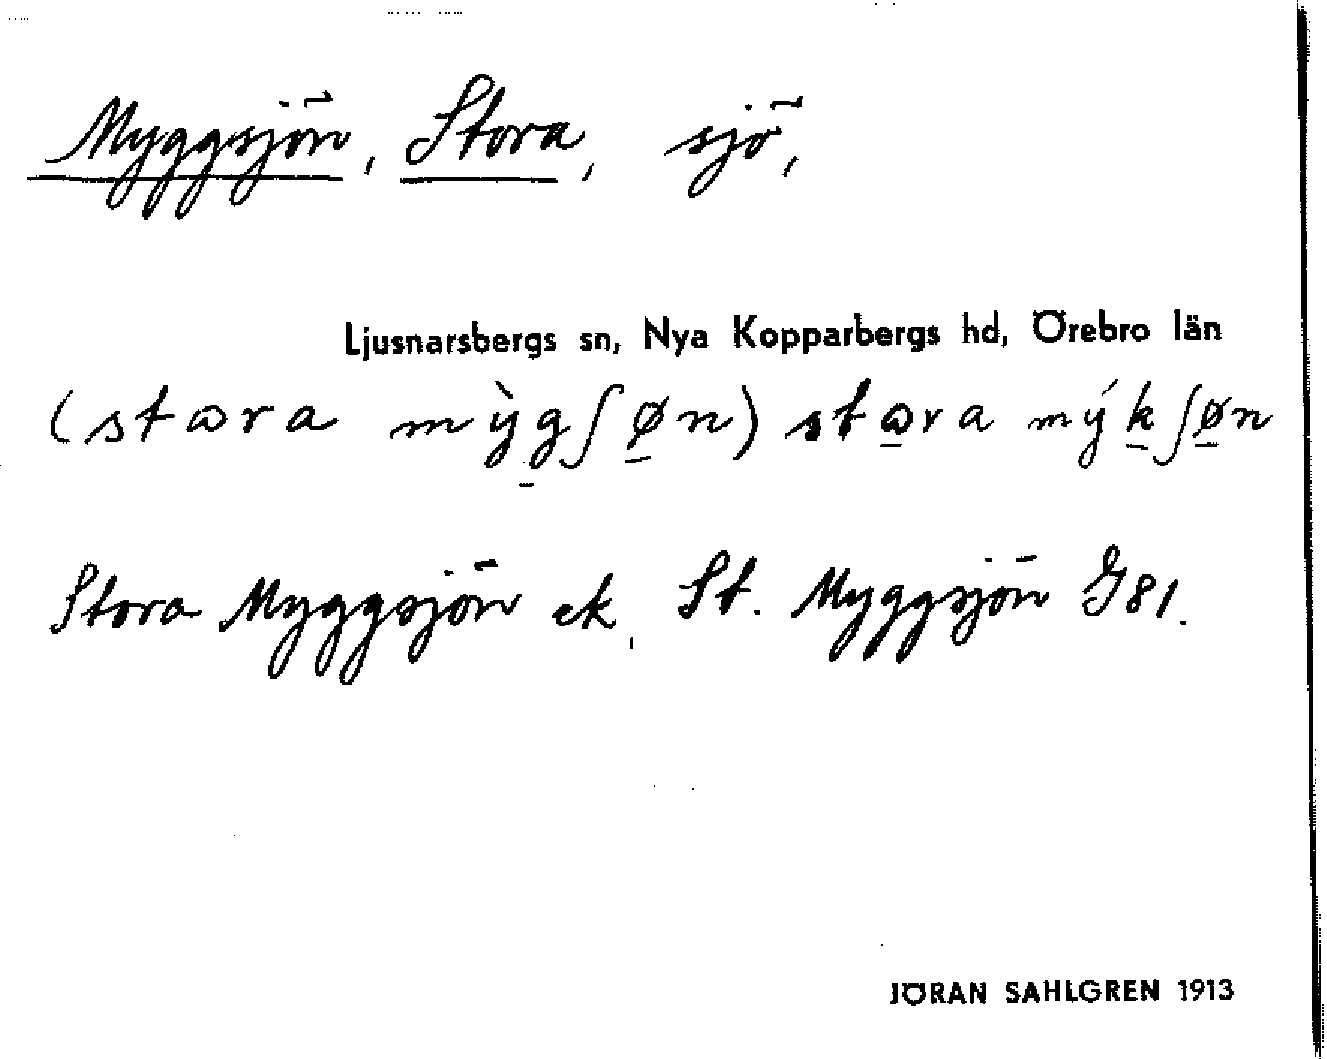 Myggsjön, Stora, sjö,
Ljusnarsbergs sn, Nya Kopparbergs hd, Örebro län
(stωra mỳg̠ʃø̠n) stω̠ra mýk̠ʃø̠n
Stora Myggsjön ek, St. Myggsjön G81.
JÖRAN SAHLGREN 1913